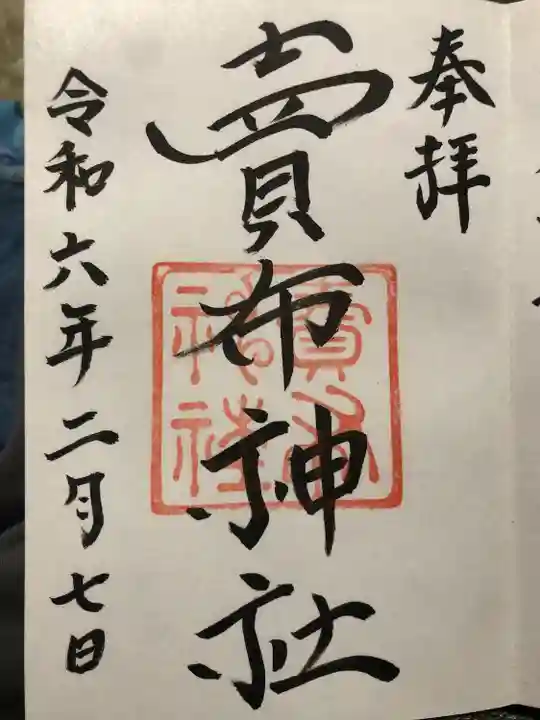 奉拝
賣布神社
賣布
神社
令和六年二月七日